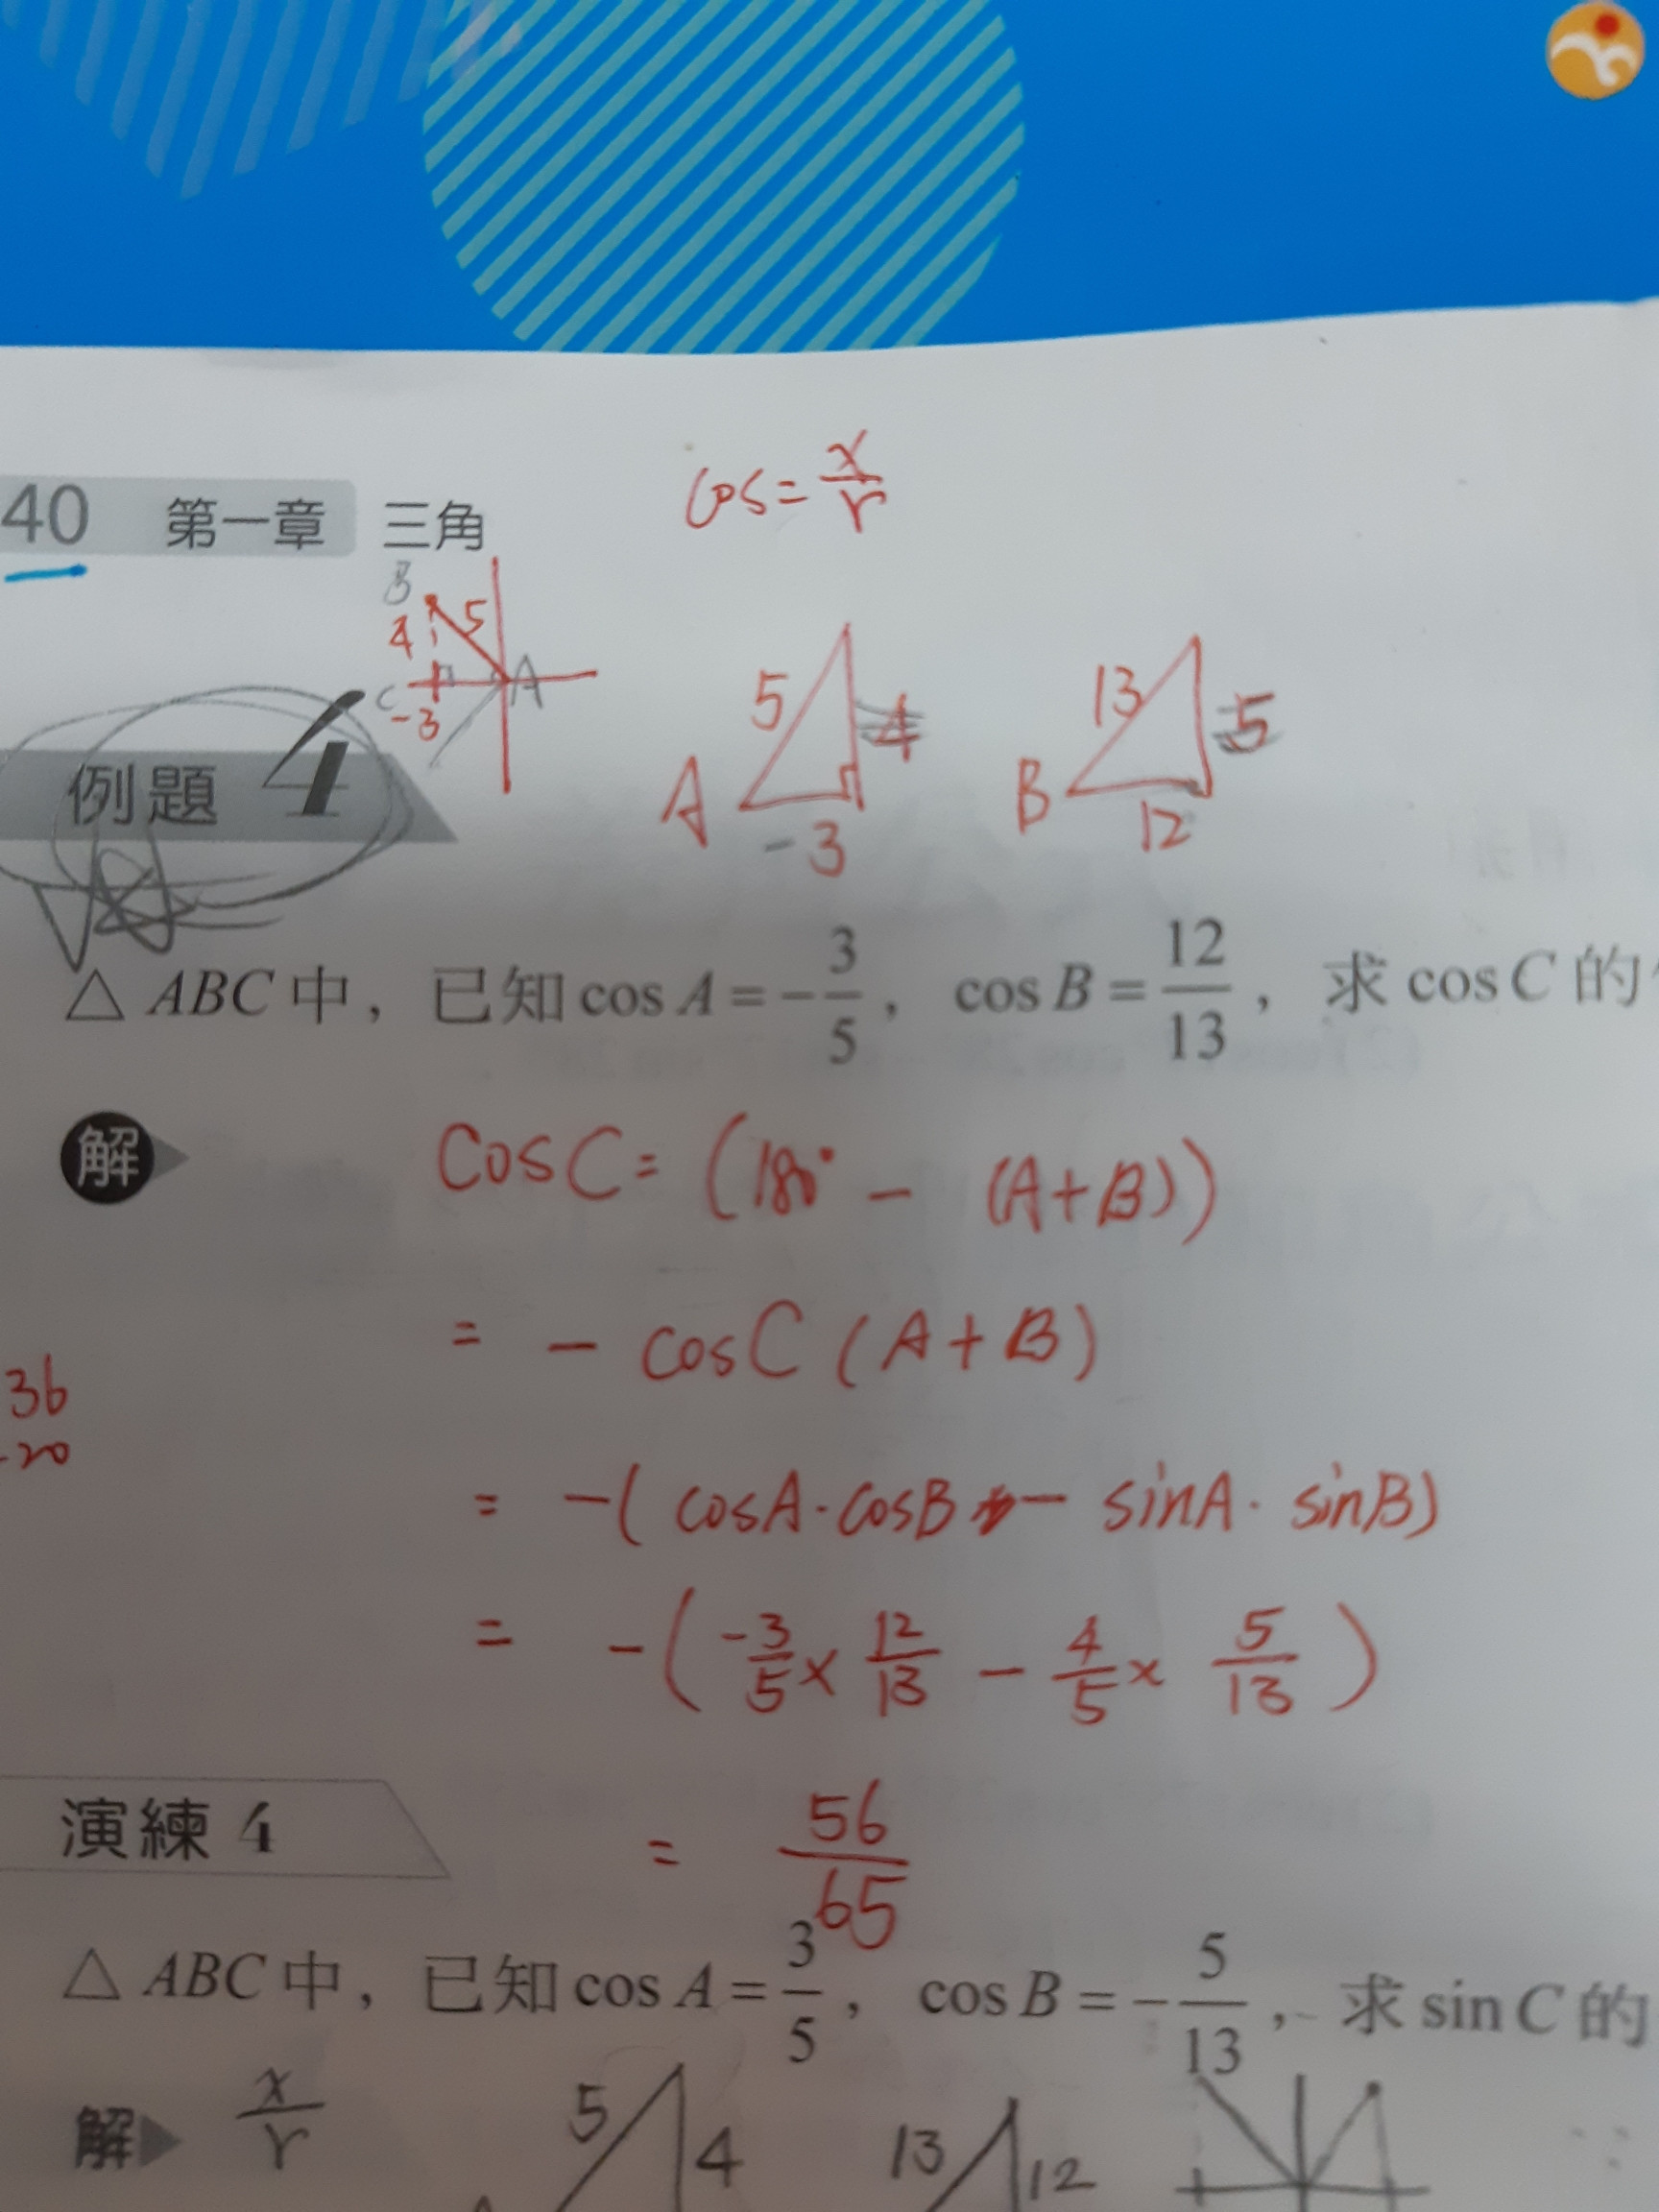 cos = x/r
40 第一章 三角
B
4 5
C A
-3
5 4
A
-3
13 5
B
12
例題 4
△ABC中，已知 cos A = -3/5， cos B = 12/13， 求 cos C 的
解 cosC = (180° - (A+B))
= - cosC (A+B)
36
-20
= -( cosA·cosB - sinA·sinB)
= -( -3/5 × 12/13 - 4/5 × 5/13 )
演練 4
= 56/65
△ABC中，已知 cos A = 3/5， cos B = -5/13， 求 sin C 的
解 x/r
5 4
13 12